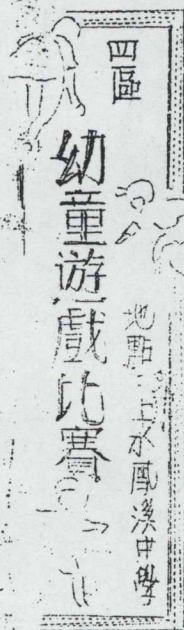 四區
幼童遊戲比賽
地點：上水鳳溪中學